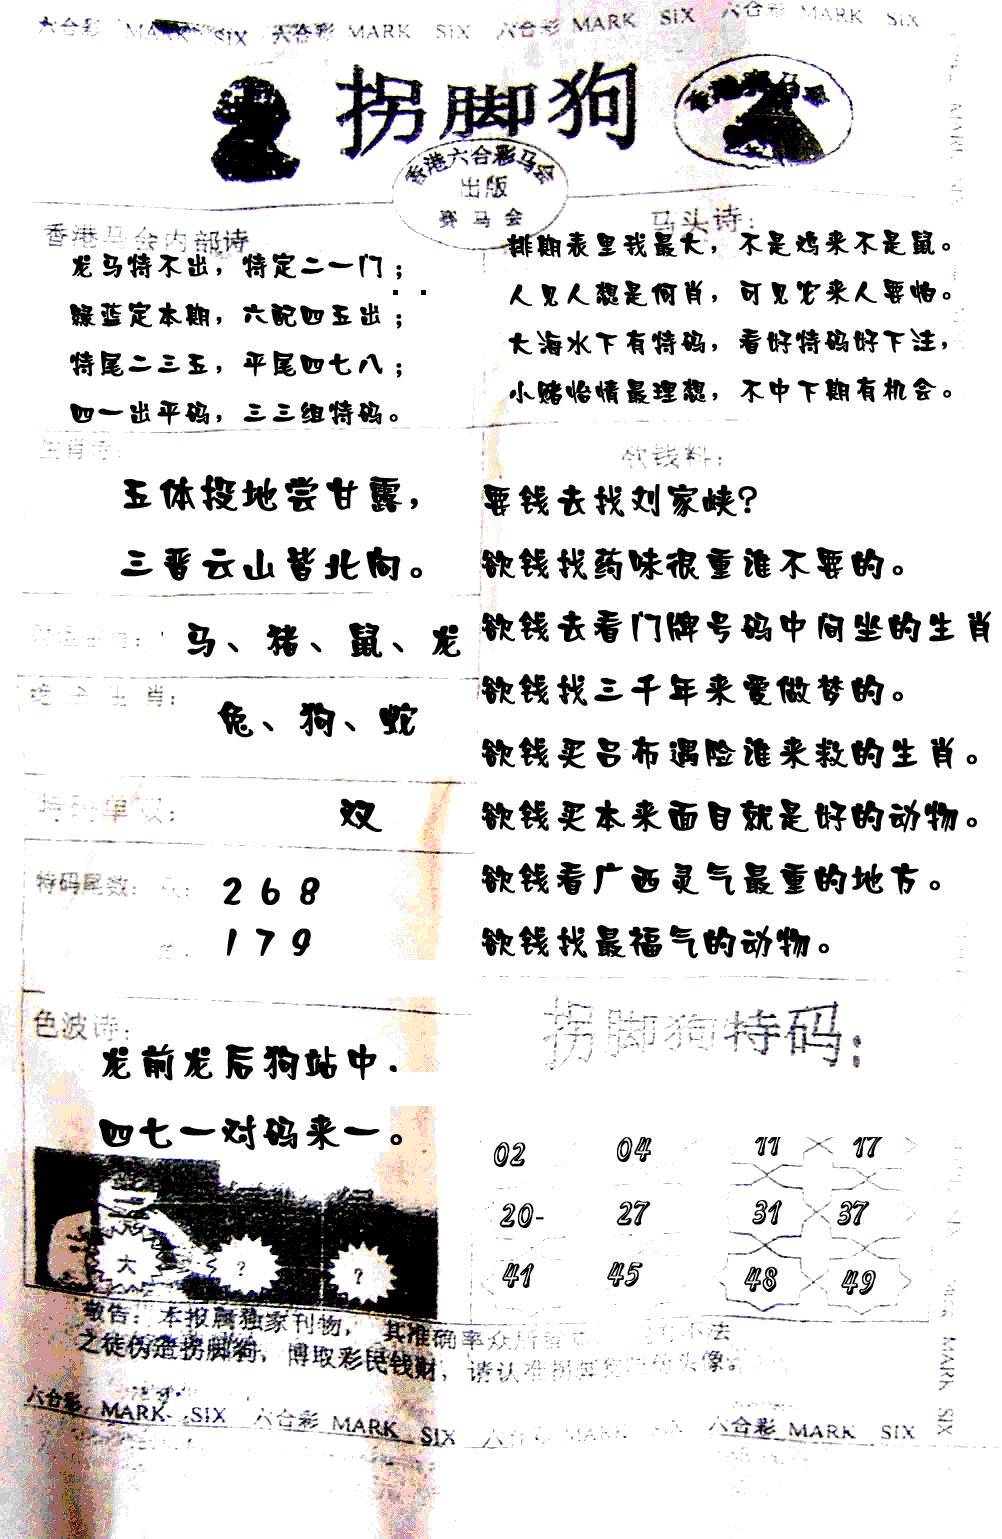 六合彩 MARK SIX 六合彩 MARK SIX 六合彩 MARK SIX 六合彩 MARK SIX
拐脚狗
香港六合彩马会
出版
赛马会
香港马会内部诗
龙马特不出，特定二一门；
绿蓝定本期，六配四五出；
特尾二三五，平尾四七八；
四一出平码，三三组特码。
马头诗：
排期表里我最大，不是鸡来不是鼠。
人见人想是何肖，可见它来人要怕。
大海水下有特码，看好特码好下注，
小赌怡情最理想，不中下期有机会。
生肖诗：
五体投地尝甘露，
三晋云山皆北向。
马、猪、鼠、龙
生肖：
兔、狗、蛇
特码单双：
双
特码尾数：
2 6 8
1 7 9
色波诗：
龙前龙后狗站中.
四七一对码来一。
大
?
?
钦钱料：
要钱去找刘家峡?
欲钱找药味很重谁不要的。
欲钱去看门牌号码中间坐的生肖
欲钱找三千年来爱做梦的。
欲钱买吕布遇险谁来救的生肖。
欲钱买本来面目就是好的动物。
欲钱看广西灵气最重的地方。
欲钱找最福气的动物。
拐脚狗特码：
02 04 11 17
20- 27 31 37
41 45 48 49
敬告：本报属独家刊物，其准确率众所 不法
之徒伪造拐脚狗，博取彩民钱财，请认准拐脚 头像。
六合彩 MARK SIX 六合彩 MARK SIX 六合彩 MARK SIX 六合彩 MARK SIX
MARK SIX